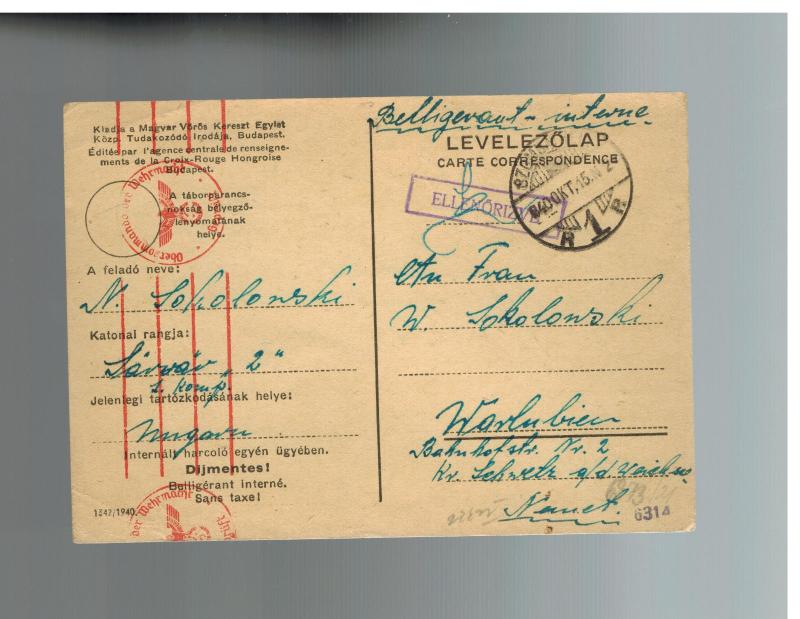 Kiadja a Magyar Vörös Kereszt Egylet
Közp. Tudakozódó Irodája, Budapest.
Éditée par l'agence centrale de renseigne-
ments de la Croix-Rouge Hongroise
Budapest.
A táborparancs-
nokság bélyegző-
lenyomatának
helye.
Oberkommando der Wehrmacht
A feladó neve:
N. Sokolowski
Katonai rangja:
Sárvár „2"
1. Komp.
Jelenlegi tartózkodásának helye:
Ungarn
Internált harcoló egyén ügyében.
Díjmentes!
Belligérant interné.
Sans taxe!
1342/1940.
der Wehrmacht
Belligerant-interne
LEVELEZŐLAP
CARTE CORRESPONDENCE
ELLENŐRIZVE
940 OKT. 15.
R 1 R
An Frau
W. Sokolowski
Warlubien
Bahnhofstr. Nr. 2
Kr. Schwetz a/d Weichs.
Nemet.
6314